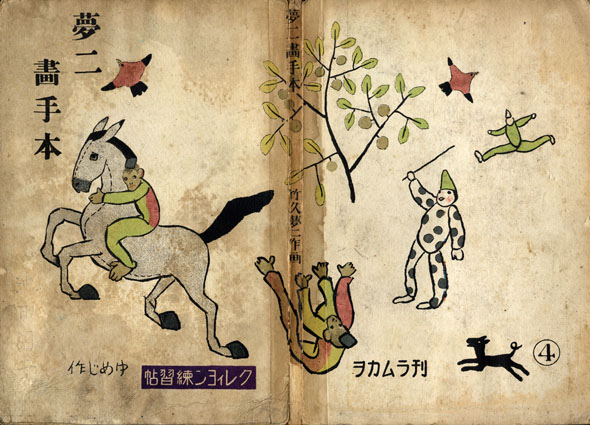 夢二
畫手本
ゆめじ作
クレィヨン練習帖
夢二畫手本
竹久夢二作画
ヲカムラ刊
4